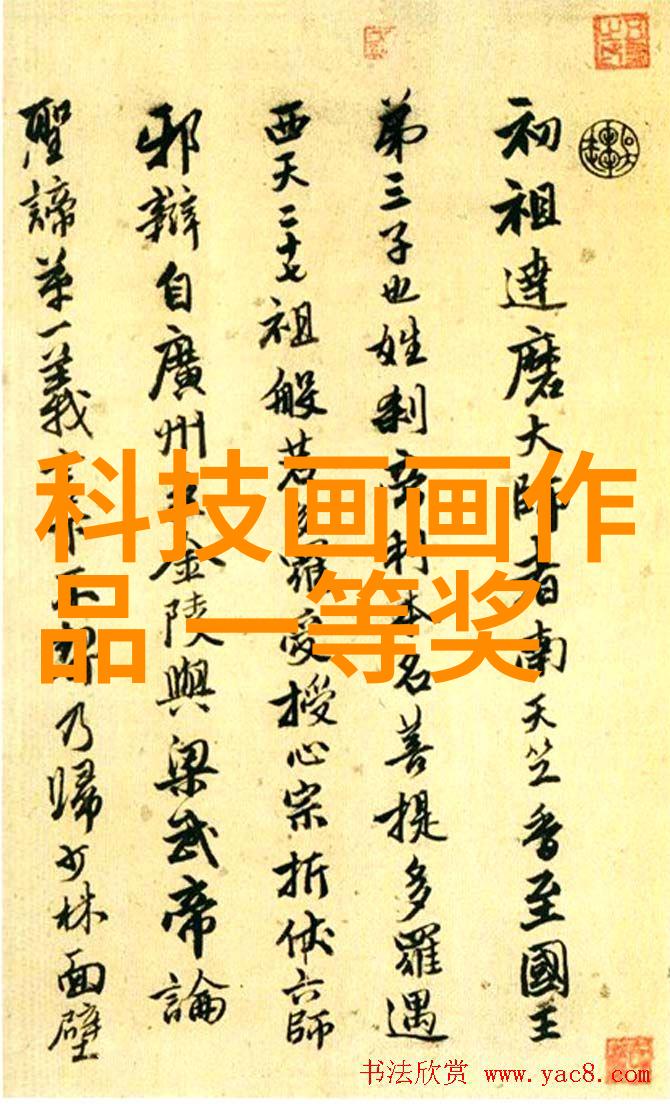 初祖達磨大師者南天竺香至國王
第三子也姓刹帝利本名菩提多羅遇
西天二十七祖般若多羅受授心宗折伏六師
邪辯自廣州至金陵與梁武帝論
聖諦第一義不契乃歸少林面壁
科技画画作
品一等奖
书法欣赏 www.yac8.com